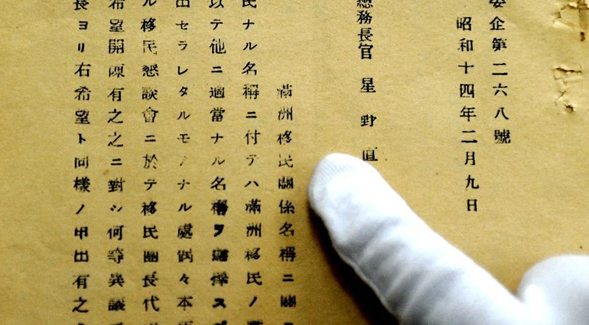 委企第二六八號
昭和十四年二月九日
總務長官 星野直
滿洲移民關係名稱ニ關
民ナル名稱ニ付テハ滿洲移民ノ
以テ他ニ適當ナル名稱ヲ選擇ス
出セラレタルモノナル處偶々本
ル移民懇談會ニ於テ移民團長代
希望開陳有之之ニ對シ何等異議
長ヨリ右希望ト同樣ノ申出有之